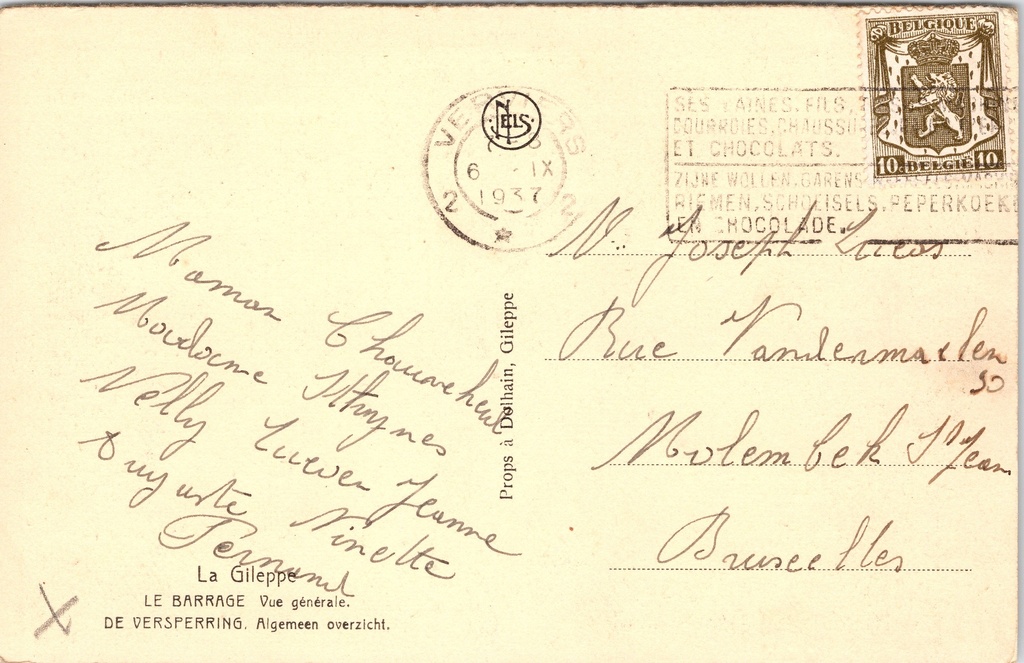 BELGIQUE
10c BELGIË 10
NELS
VERVIERS
6 IX
1937
2 2
SES LAINES, FILS,
COURROIES, CHAUSSU
ET CHOCOLATS.
ZIJNE WOLLEN, GARENS
RIEMEN, SCHOEISELS, PEPERKOEK
EN CHOCOLADE.
Joseph Lucas
Rue Vandermaelen
30
Molembek St Jean
Bruxelles
Maman
Madame
Nelly Lucien Jeanne
Auguste Ninette
Fernand
Props à Dolhain, Gileppe
La Gileppe
LE BARRAGE Vue générale.
DE VERSPERRING. Algemeen overzicht.
X